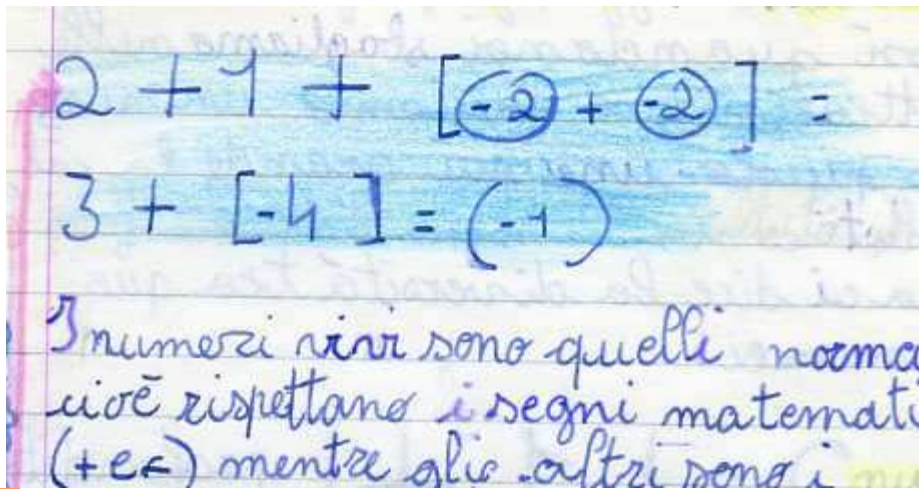 2 + 1 + [-2 + -2] =
3 + [-4] = (-1)
I numeri vivi sono quelli norma
cioè rispettano i segni matemat
(+ e -) mentre gli altri sono i nu